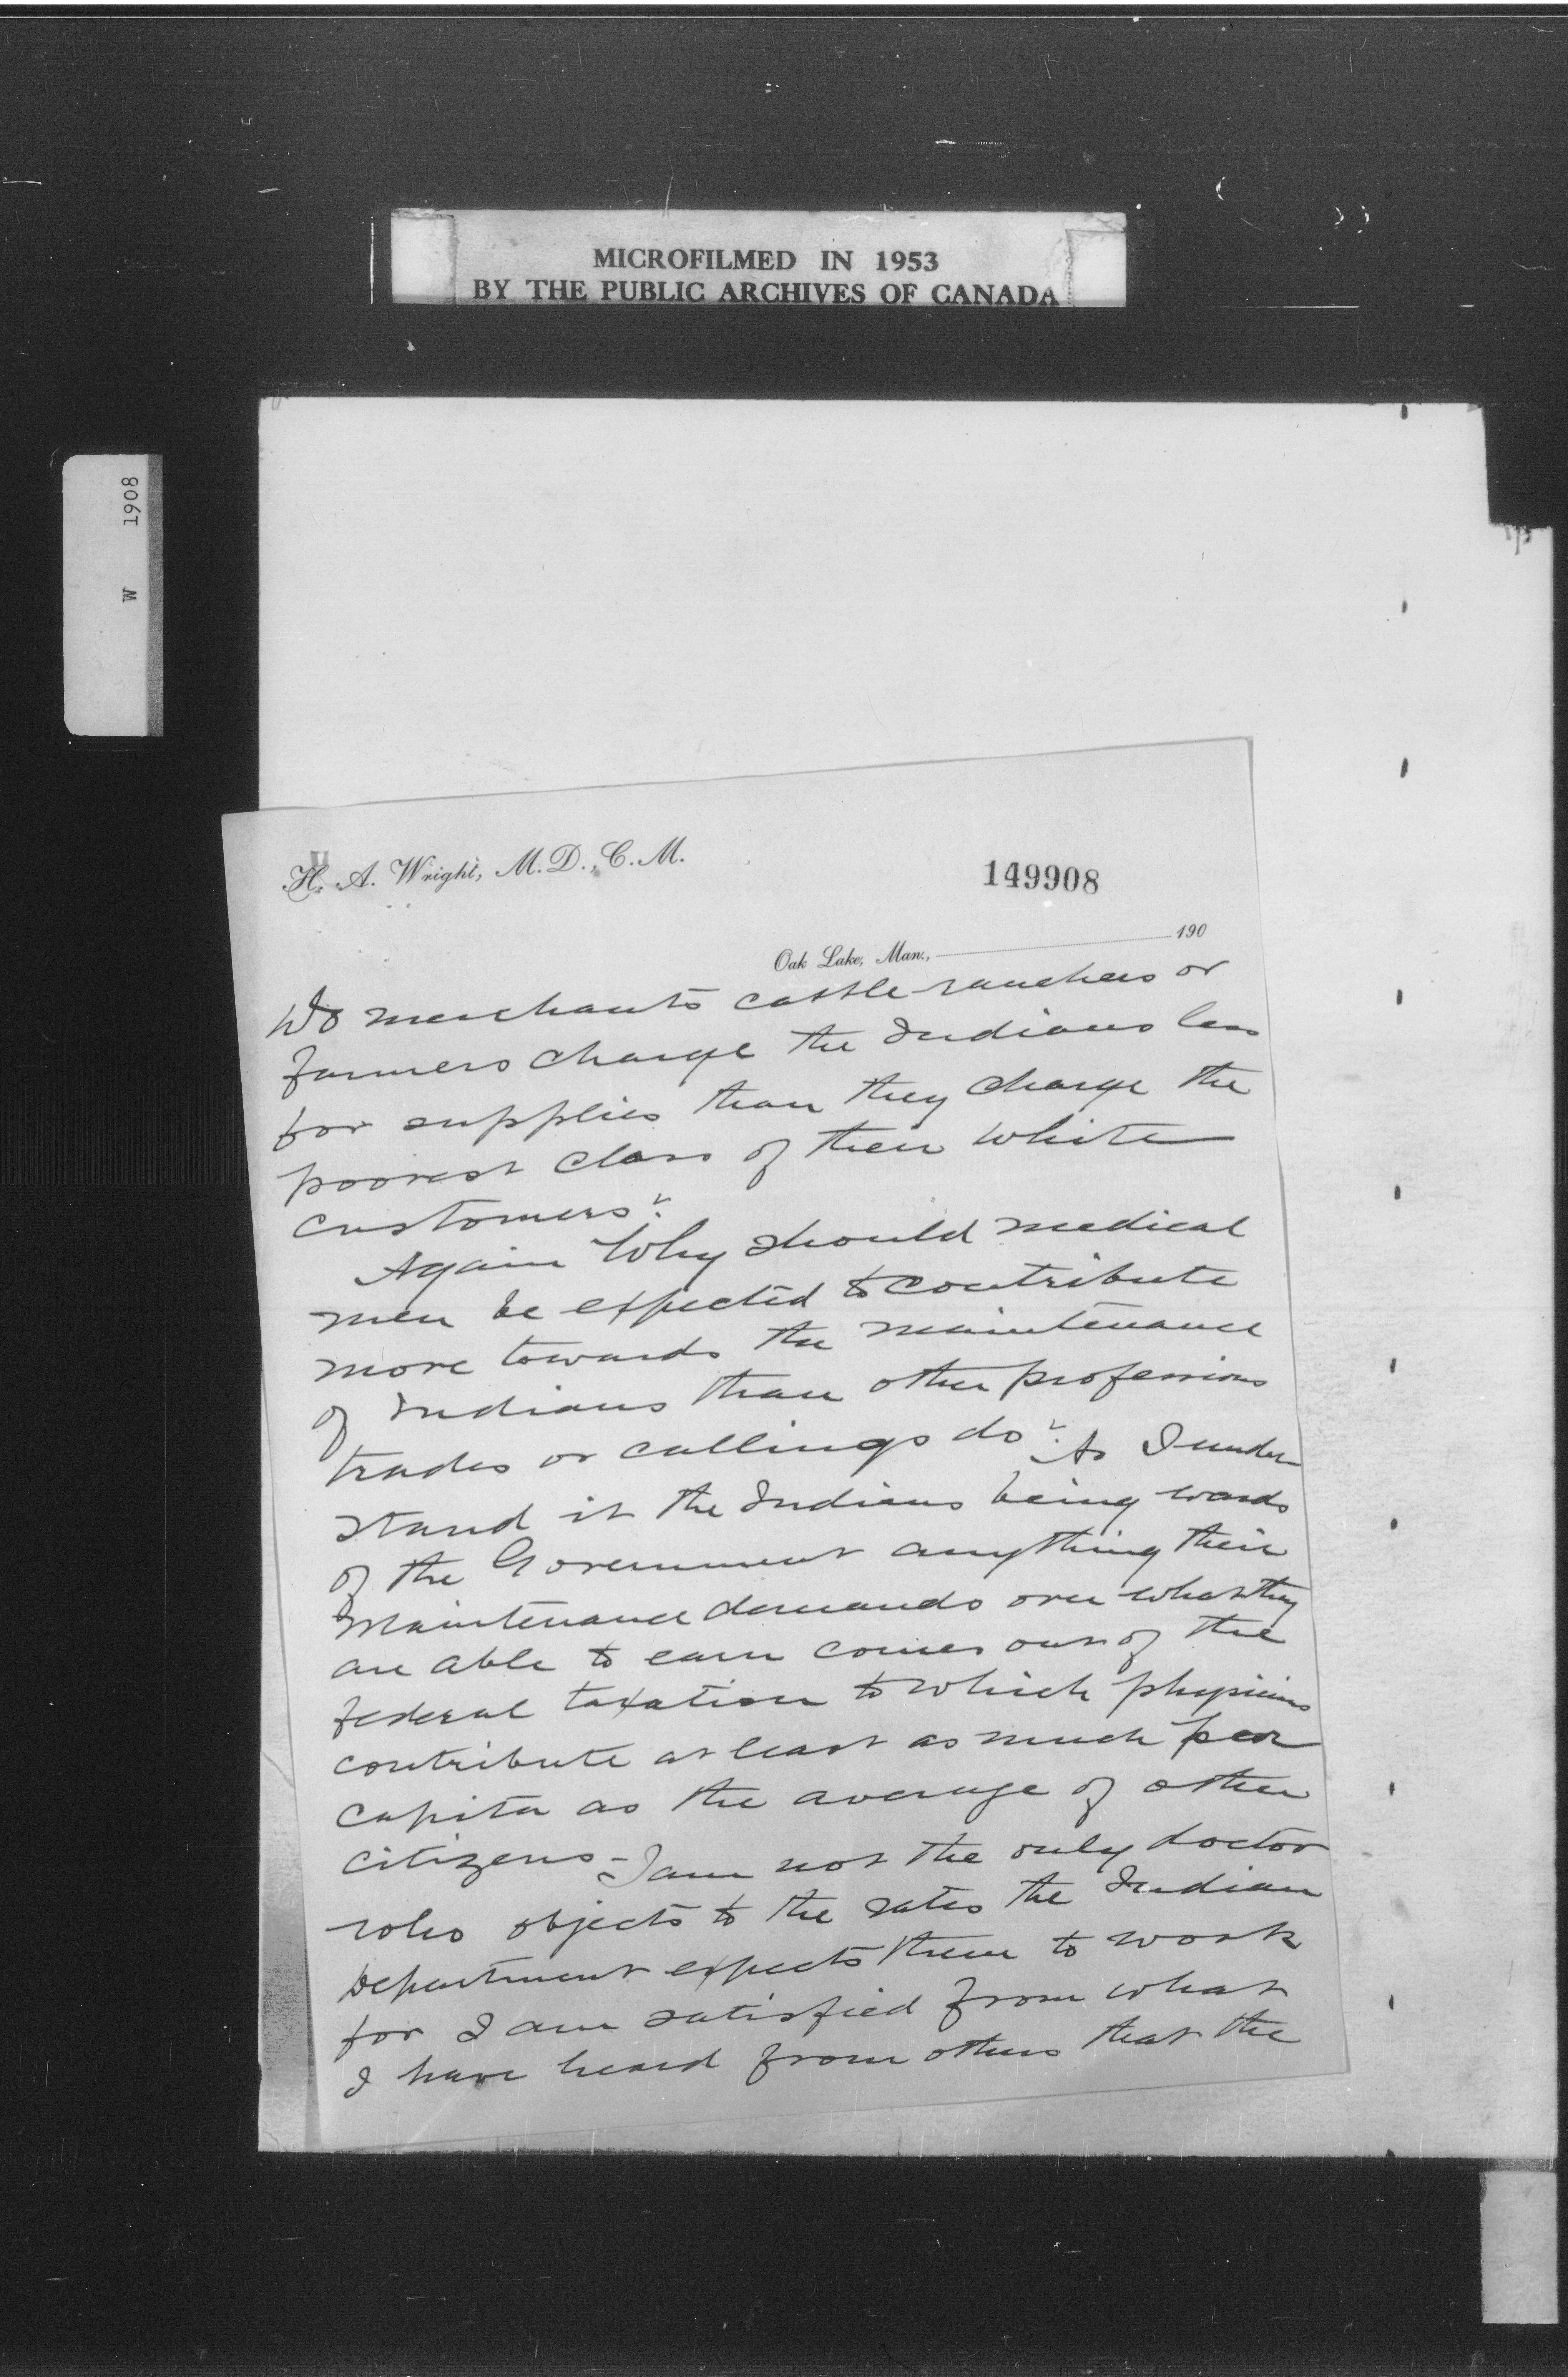 MICROFILMED IN 1953
BY THE PUBLIC ARCHIVES OF CANADA
W 1908
H. A. Wright, M.D., C.M.
149908
Oak Lake, Man., 190
Do merchants cattle-ranchers or
farmers charge the Indians less
for supplies than they charge the
poorest class of their white
customers?
Again Why should medical
men be expected to contribute
more towards the maintenance
of Indians than other professions
trades or callings do? As I under
stand it the Indians being wards
of the Government anything their
maintenance demands over what they
are able to earn comes out of the
federal taxation to which physicians
contribute at least as much per
capita as the average of other
citizens - I am not the only doctor
who objects to the rates the Indian
Department expects them to work
for I am satisfied from what
I have heard from others that the